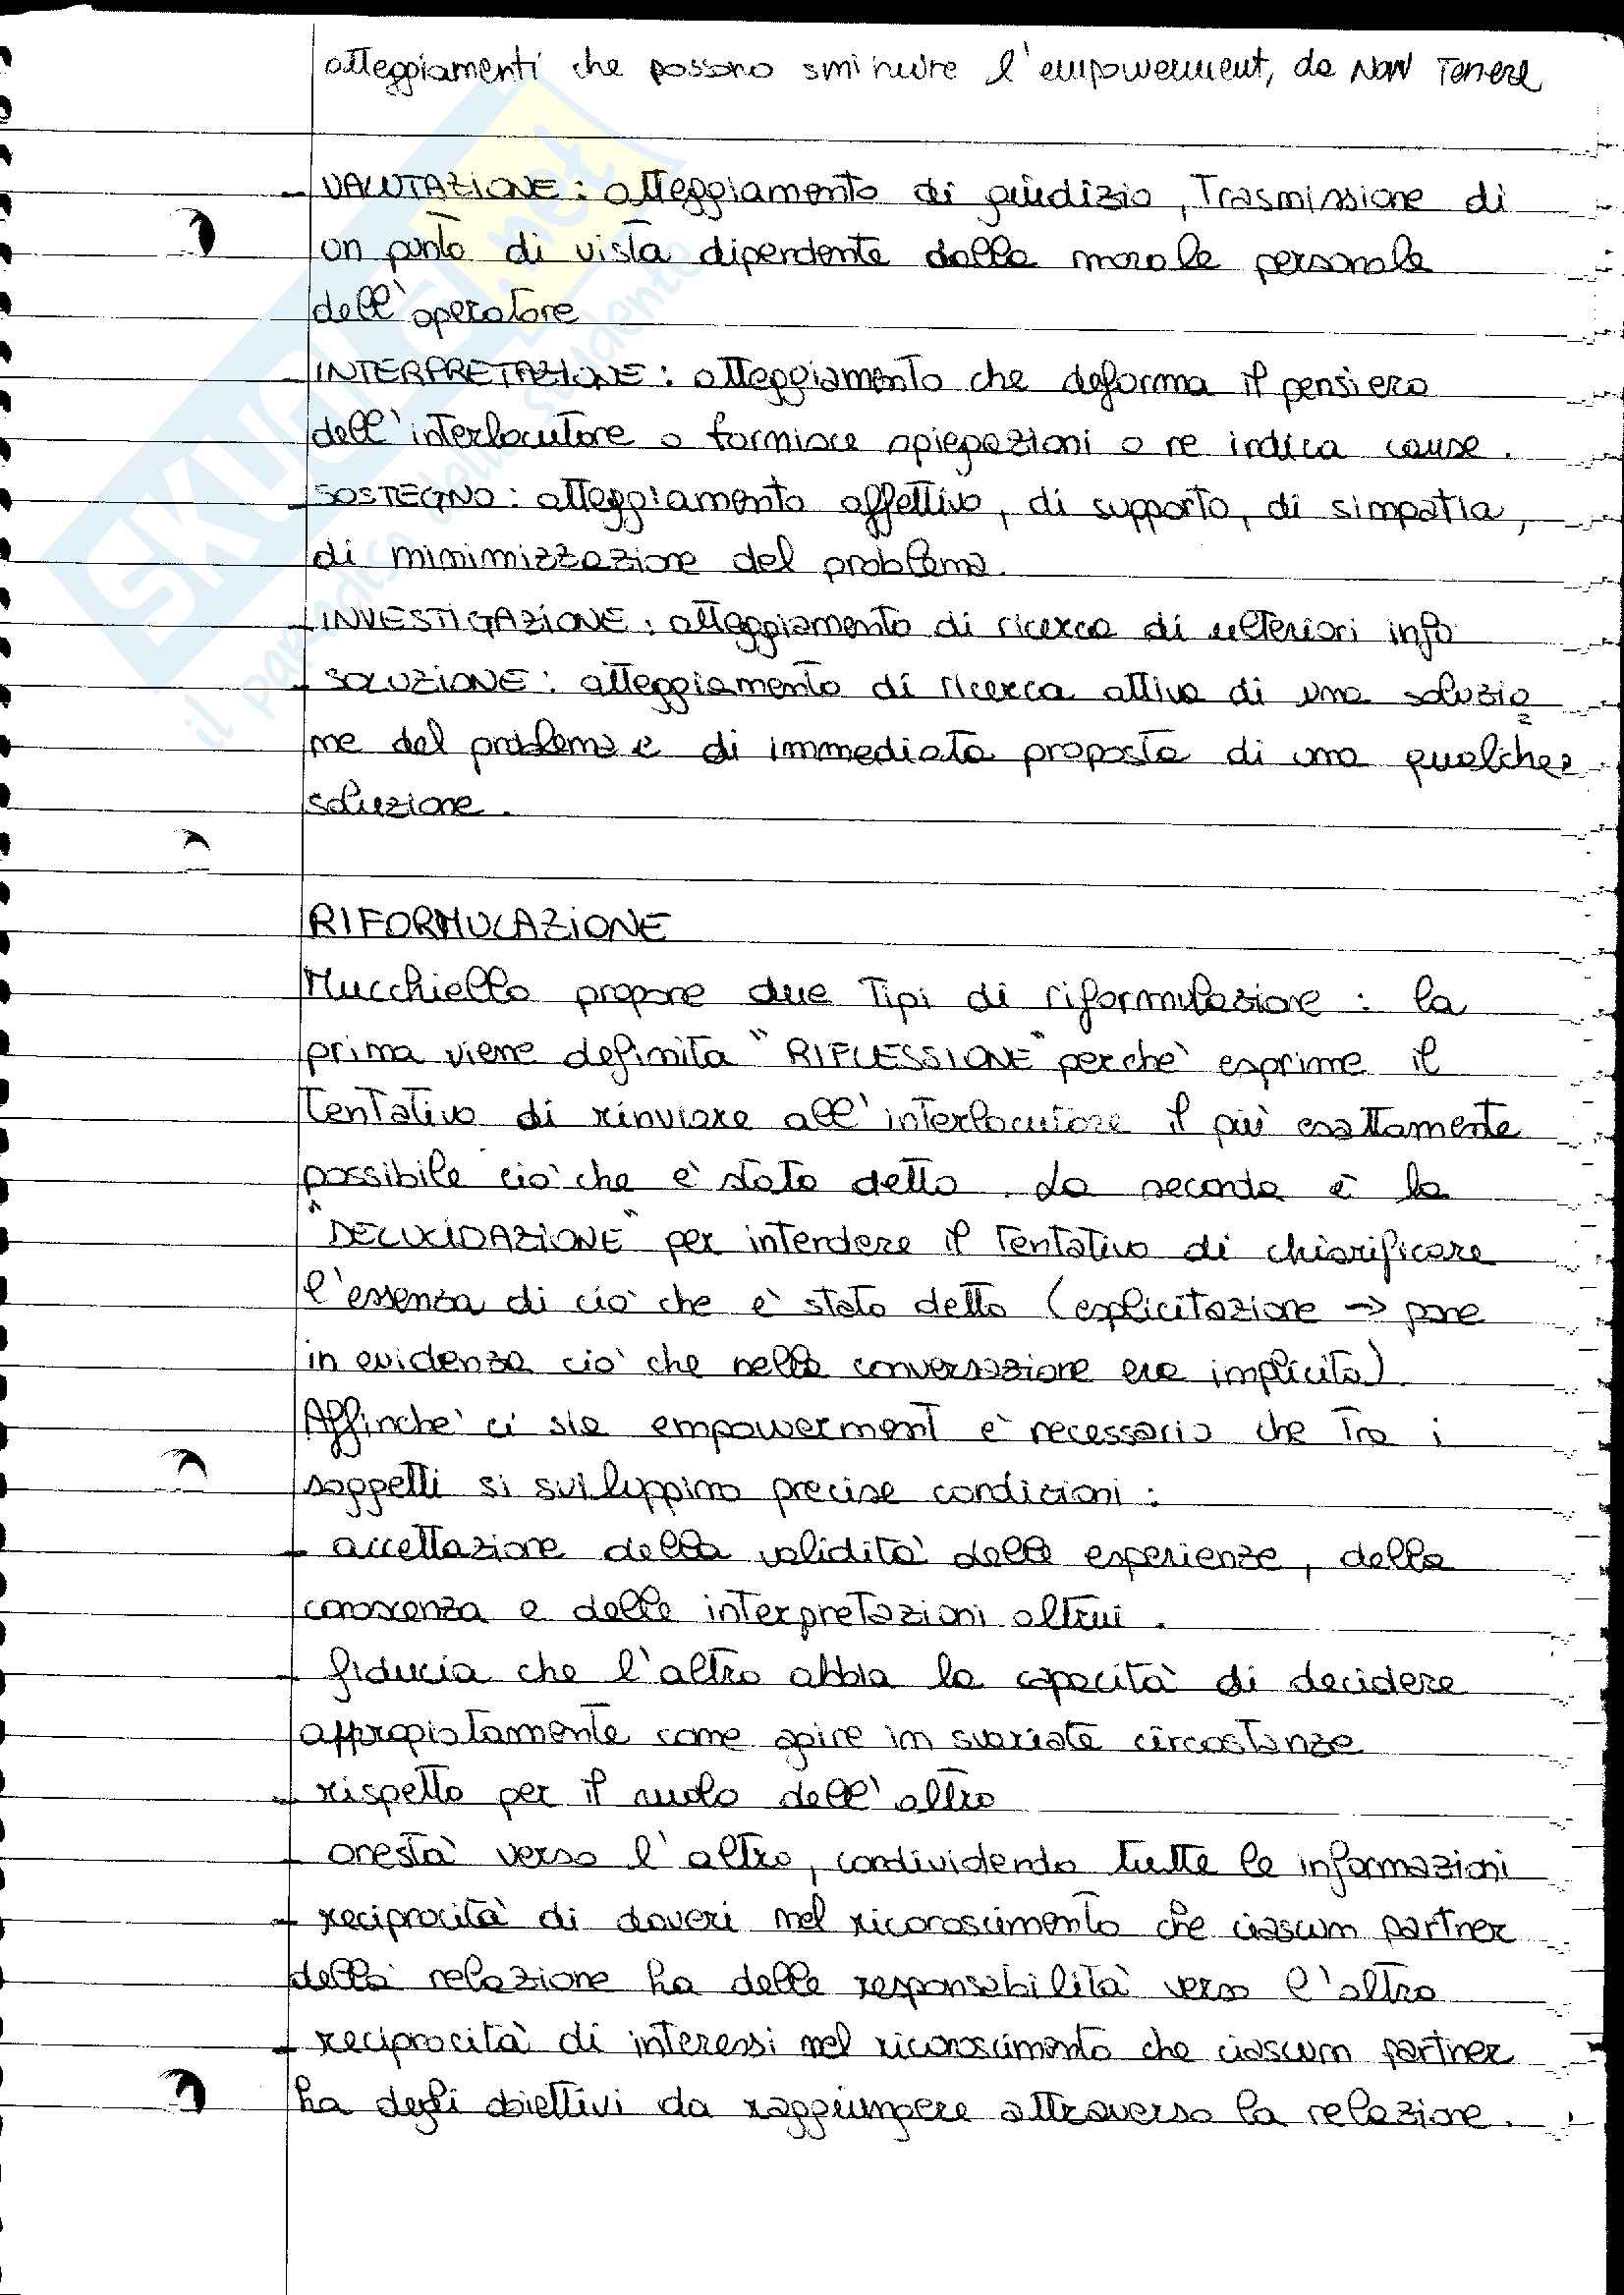 atteggiamenti che possono sminuire l'empowerment, da NON Tenere
- VALUTAZIONE: atteggiamento di giudizio, Trasmissione di
un punto di vista dipendente dalla morale personale
dell'operatore
- INTERPRETAZIONE: atteggiamento che deforma il pensiero
dell'interlocutore o fornisce spiegazioni o ne indica cause.
- SOSTEGNO: atteggiamento affettivo, di supporto, di simpatia,
di minimizzazione del problema.
- INVESTIGAZIONE: atteggiamento di ricerca di ulteriori info
- SOLUZIONE: atteggiamento di ricerca attiva di una soluzio
ne del problema e di immediata proposta di una qualche
soluzione.
RIFORMULAZIONE
Mucchiello propone due Tipi di riformulazione: la
prima viene definita "RIFLESSIONE" perchè esprime il
Tentativo di rinviare all'interlocutore il più esattamente
possibile ciò che è stato detto. La seconda è la
"DELUCIDAZIONE" per intendere il Tentativo di chiarificare
l'essenza di ciò che è stato detto (esplicitazione -> pone
in evidenza ciò che nella conversazione era implicito)
Affinchè ci sia empowerment è necessario che Tra i
soggetti si sviluppino precise condizioni:
- accettazione della validità delle esperienze, della
conoscenza e delle interpretazioni altrui.
- fiducia che l'altro abbia la capacità di decidere
appropiatamente come agire in svariate circostanze
- rispetto per il ruolo dell'altro
- onestà verso l'altro, condividendo tutte le informazioni
- reciprocità di doveri nel riconoscimento che ciascun partner
della relazione ha delle responsabilità verso l'altro
- reciprocità di interessi nel riconoscimento che ciascun partner
ha degli obiettivi da raggiungere attraverso la relazione.
SKUOLA.net
il paradiso dello studente